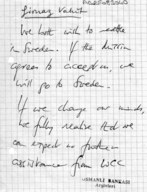 We both wish to settle
in Sweden. If the
agrees to accept us, we
will go to Sweden.
If we change our minds,
we fully realise that we
can expect no further
assistance from WCC
OSMANLI BANKASI